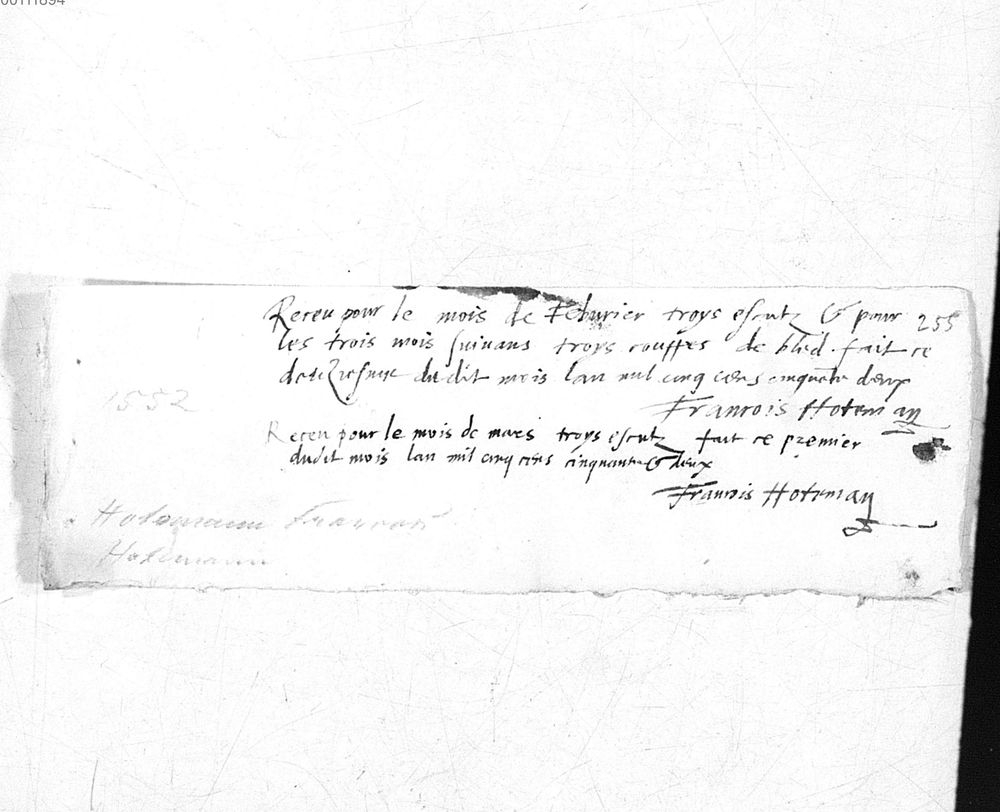 Receu pour le mois de Feburier troys escutz & pour 255
les trois mois suivans troys couppes de bled. fait ce
dudit mois lan mil cinq cens cinquāte deux
Francois Hotoman
1552
Receu pour le mois de mars troys escutz fait ce premier
dudit mois lan mil cinq cens cinquante & deux
Francois Hotoman
Hotomann Francois
Hotomann